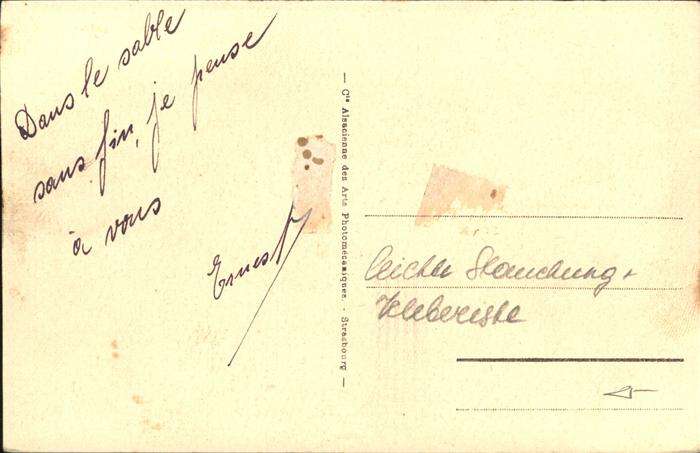 Dans le sable
sans fin, je pense
à vous
Ernest
— Cie Alsacienne des Arts Photomécaniques. - Strasbourg —
leichte Stauchung +
Klebereste